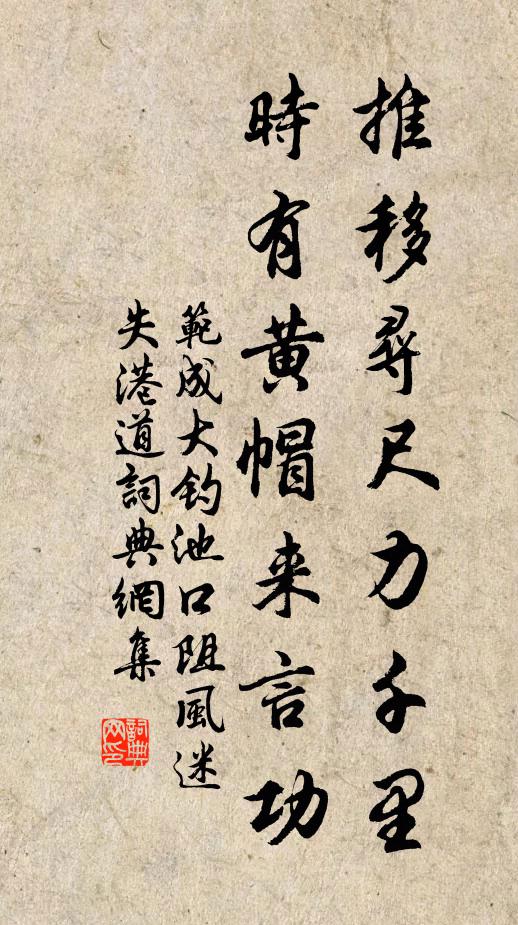 推移尋尺力千里
時有黃帽来言功
範成大釣池口阻風迷
失港道詞典網集
詞典
网印